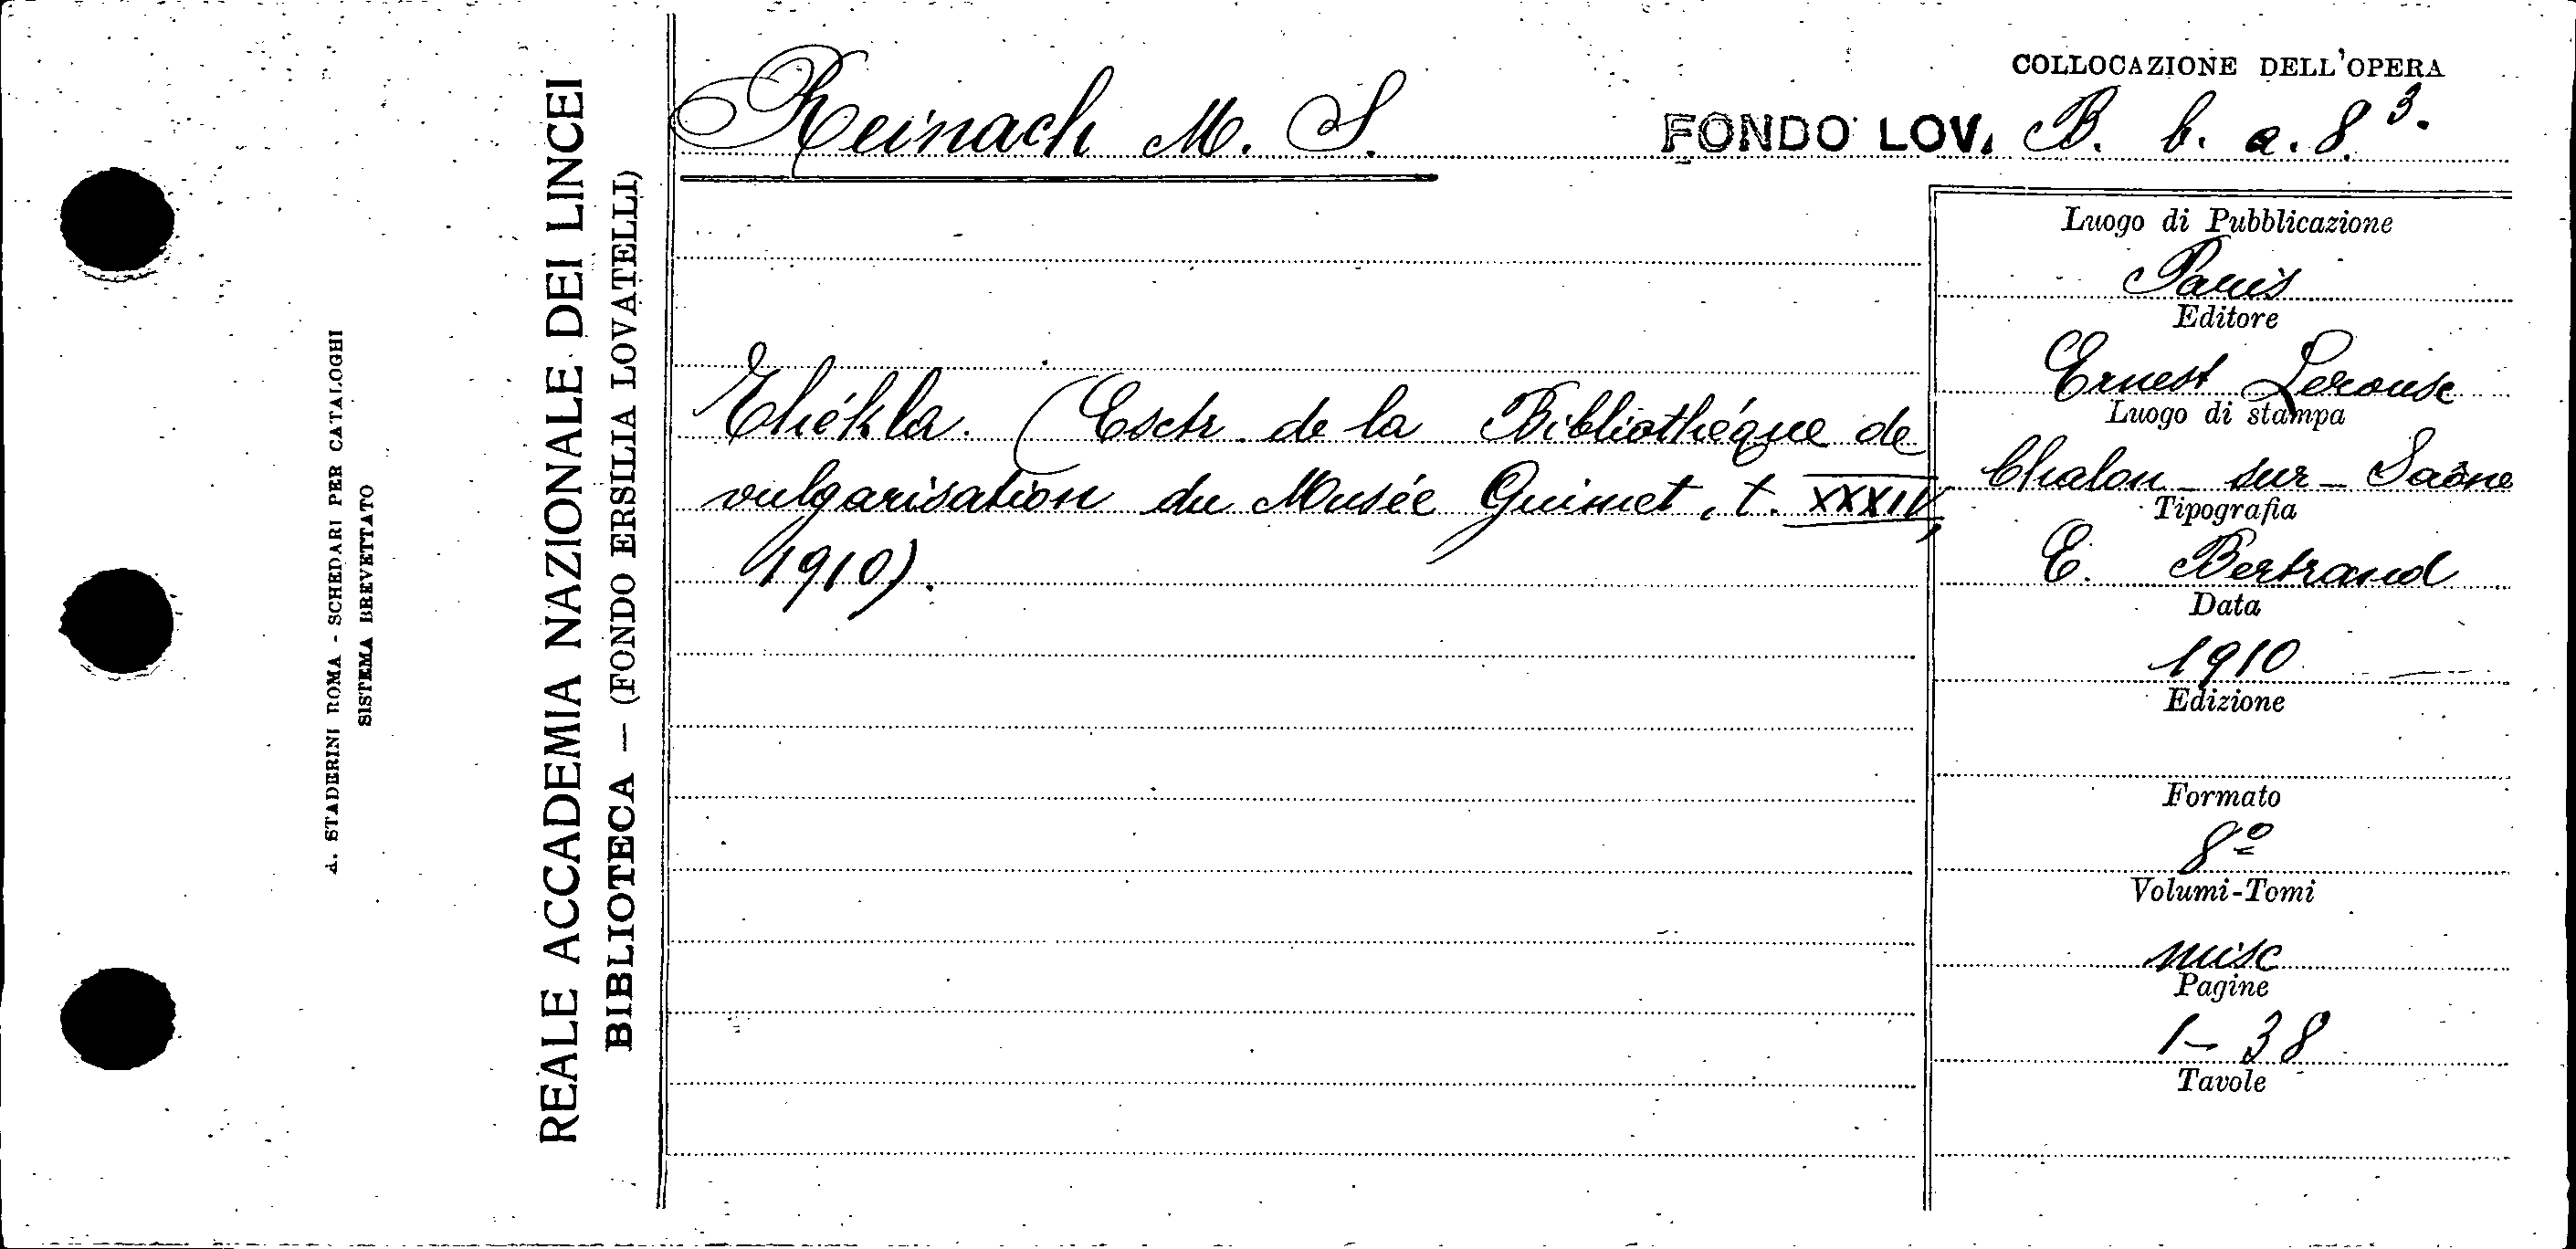 A. STADERINI ROMA - SCHEDARI PER CATALOGHI
SISTEMA BREVETTATO
REALE ACCADEMIA NAZIONALE DEI LINCEI
BIBLIOTECA — (FONDO ERSILIA LOVATELLI)
Reinach M. S.
COLLOCAZIONE DELL'OPERA
FONDO LOV. B. b. a. 8 3.
Thékla. (Esctr. de la Bibliothéque de
vulgarisation du Musée Guimet, t. XXXIV,
1910).
Luogo di Pubblicazione
Paris
Editore
Ernest Lerouse
Luogo di stampa
Chalon-sur-Saône
Tipografia
E. Bertrand
Data
1910
Edizione
Formato
8º
Volumi-Tomi
misc
Pagine
1-38
Tavole